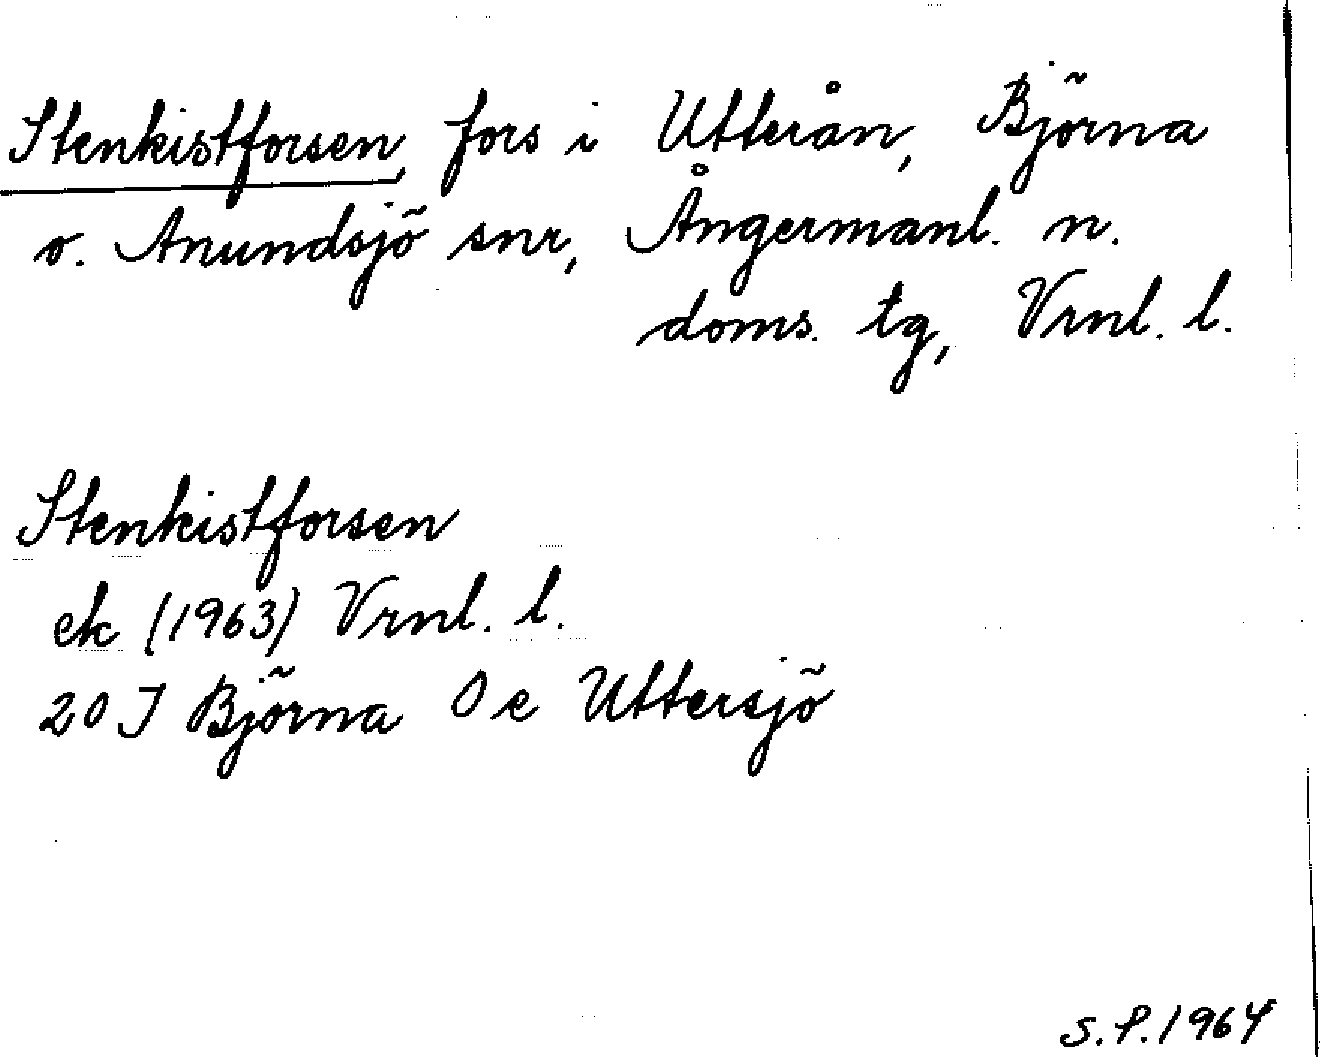 Stenkistforsen, fors i Utterån, Björna
o. Anundsjö snr, Ångermanl. n.
doms. tg, Vrnl. l.
Stenkistforsen
ek (1963) Vrnl. l.
20 J Björna 0 e Uttersjö
S.P. 1964